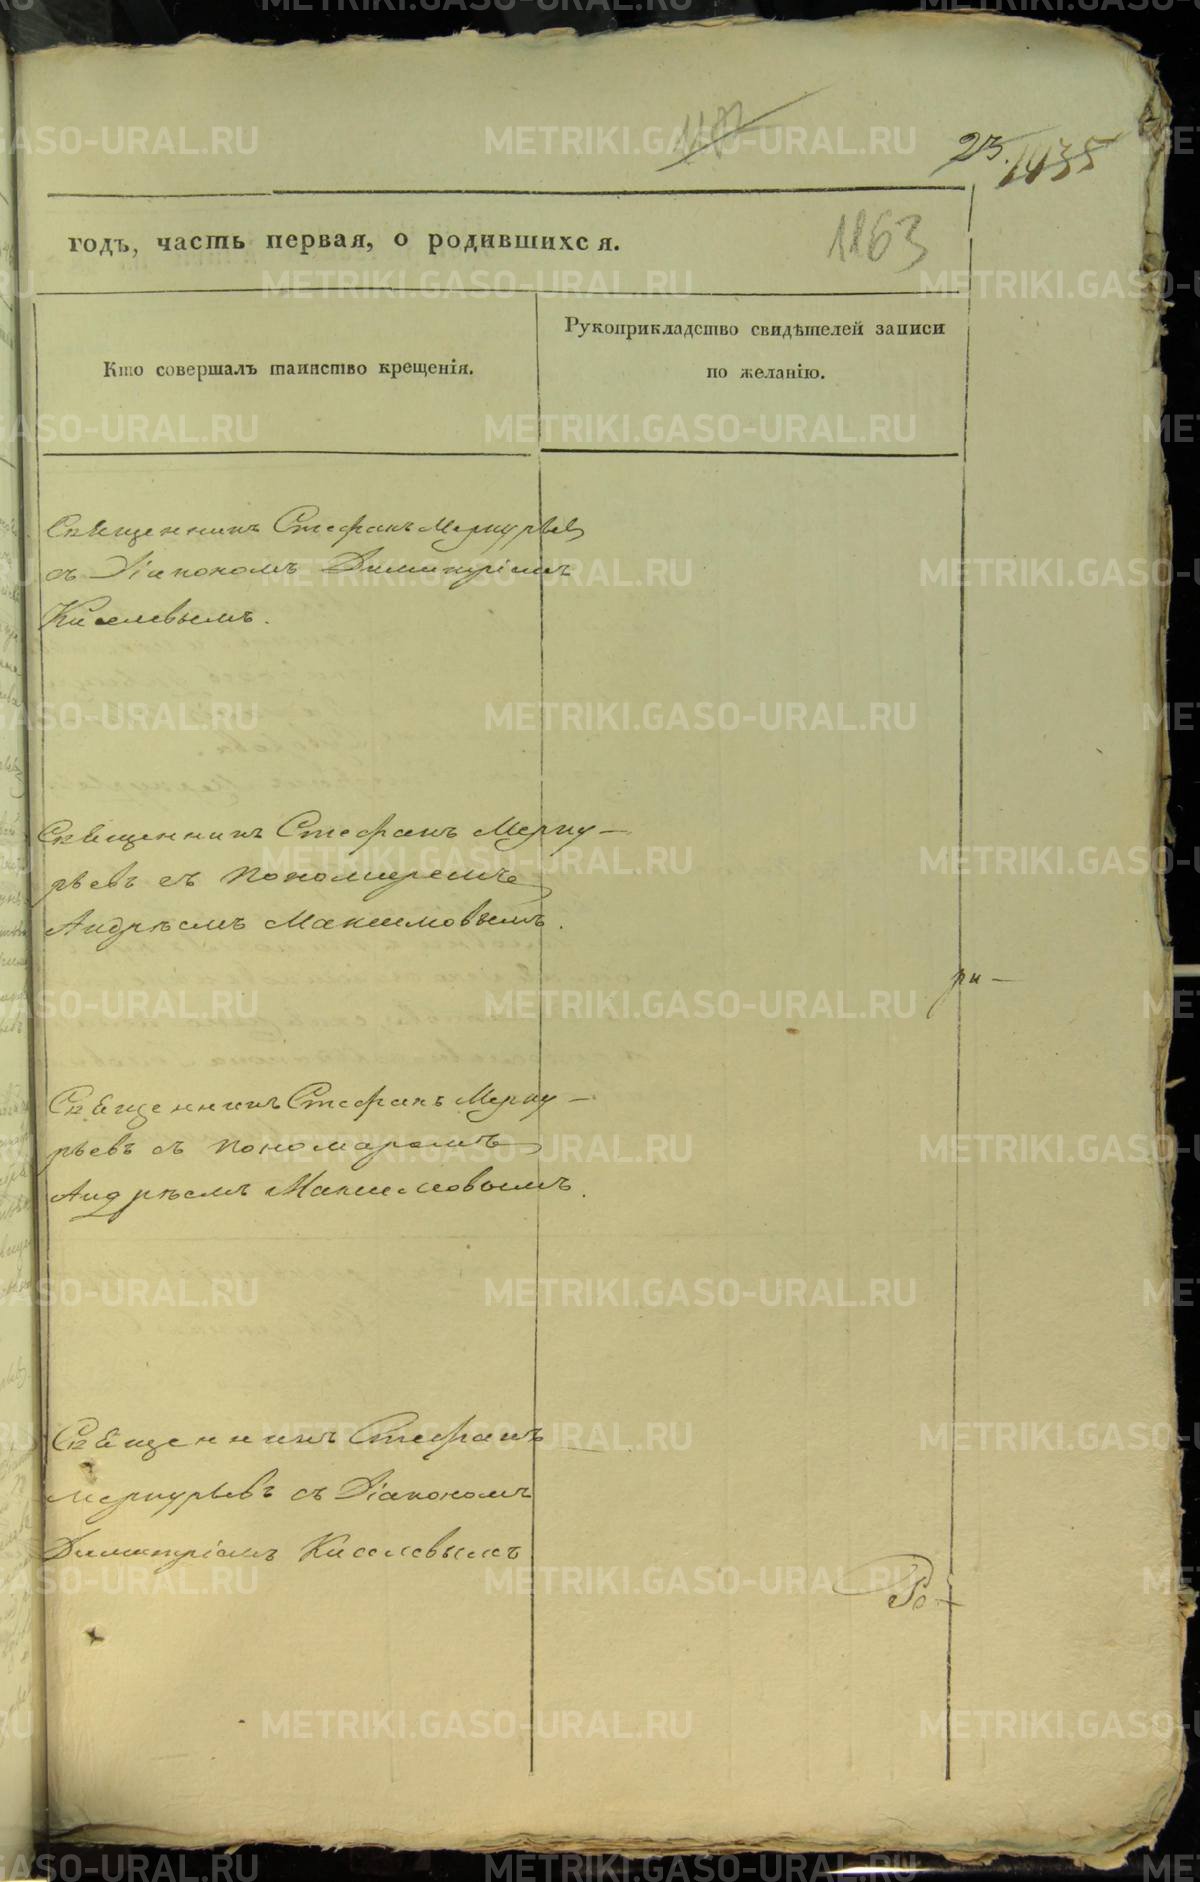 23.
1035
1163
годъ, часть первая, о родившихся.
Кто совершалъ таинство крещенія.
Рукоприкладство свидѣтелей записи
по желанію.
Священникъ Стефанъ Меркурьев
съ Діакономъ Димитріемъ
Киселевымъ.
Священникъ Стефанъ Мерку-
рьевъ съ пономаремъ
Андрѣемъ Максимовымъ.
ри-
Священникъ Стефанъ Мерку-
рьевъ съ пономаремъ
Андрѣемъ Максимовымъ.
Священникъ Стефанъ
Меркурьевъ съ Діакономъ
Димитріемъ Киселевымъ
Ро-
METRIKI.GASO-URAL.RU